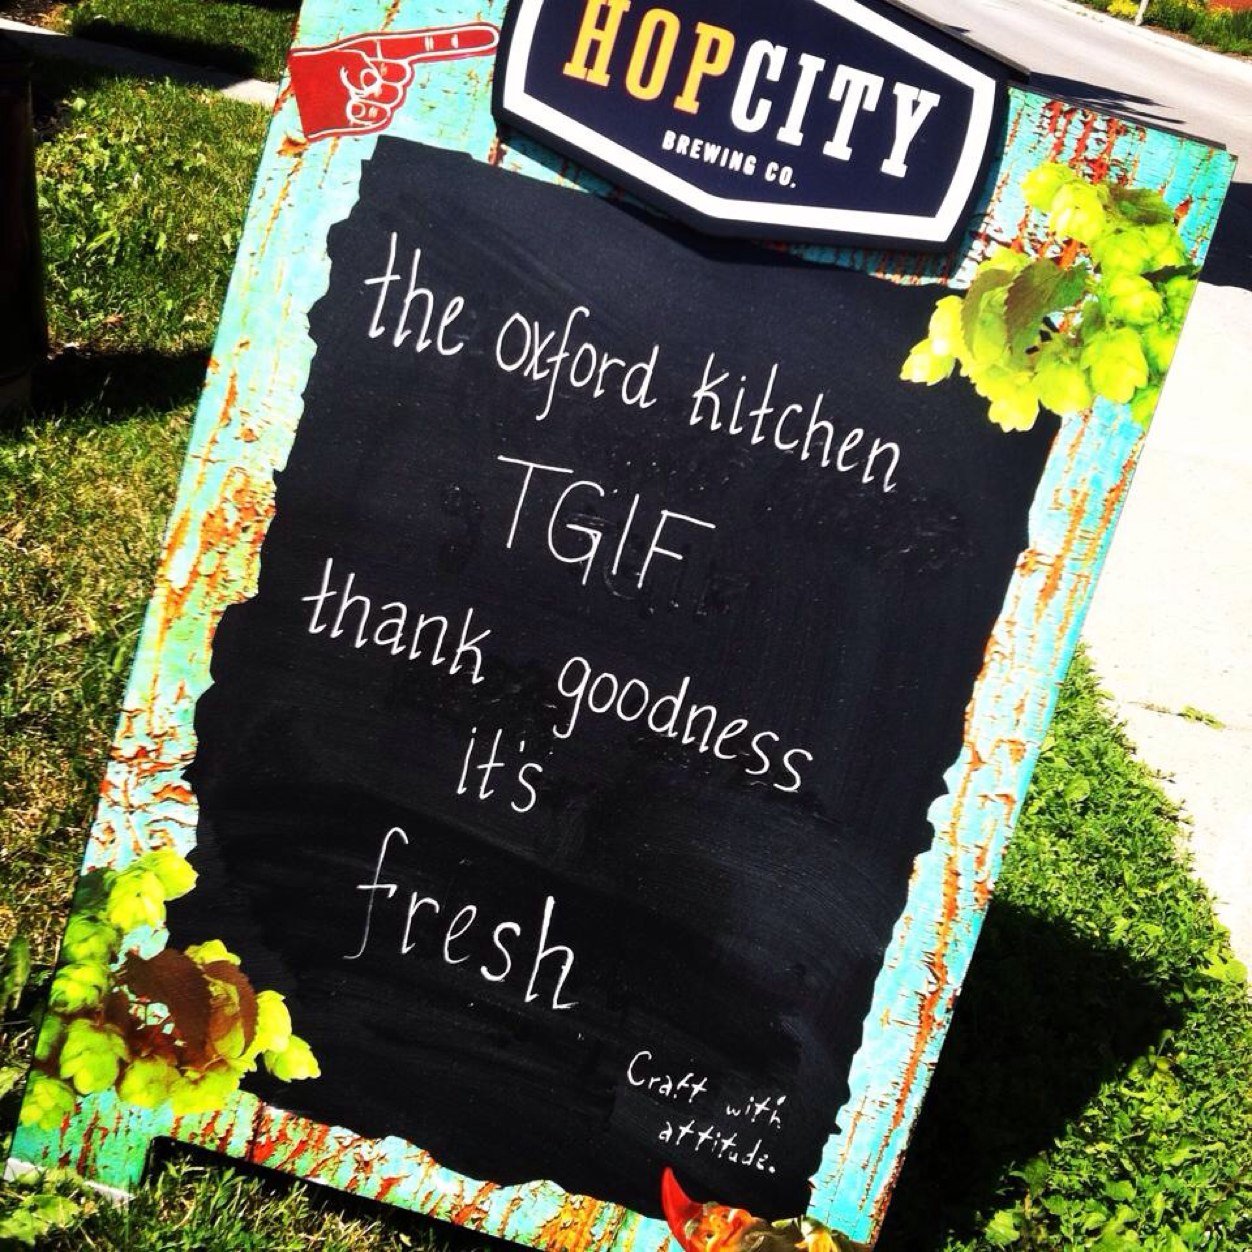 HOPCITY
BREWING CO.
the oxford kitchen
TGIF
thank goodness
it's
fresh
Craft with
attitude.